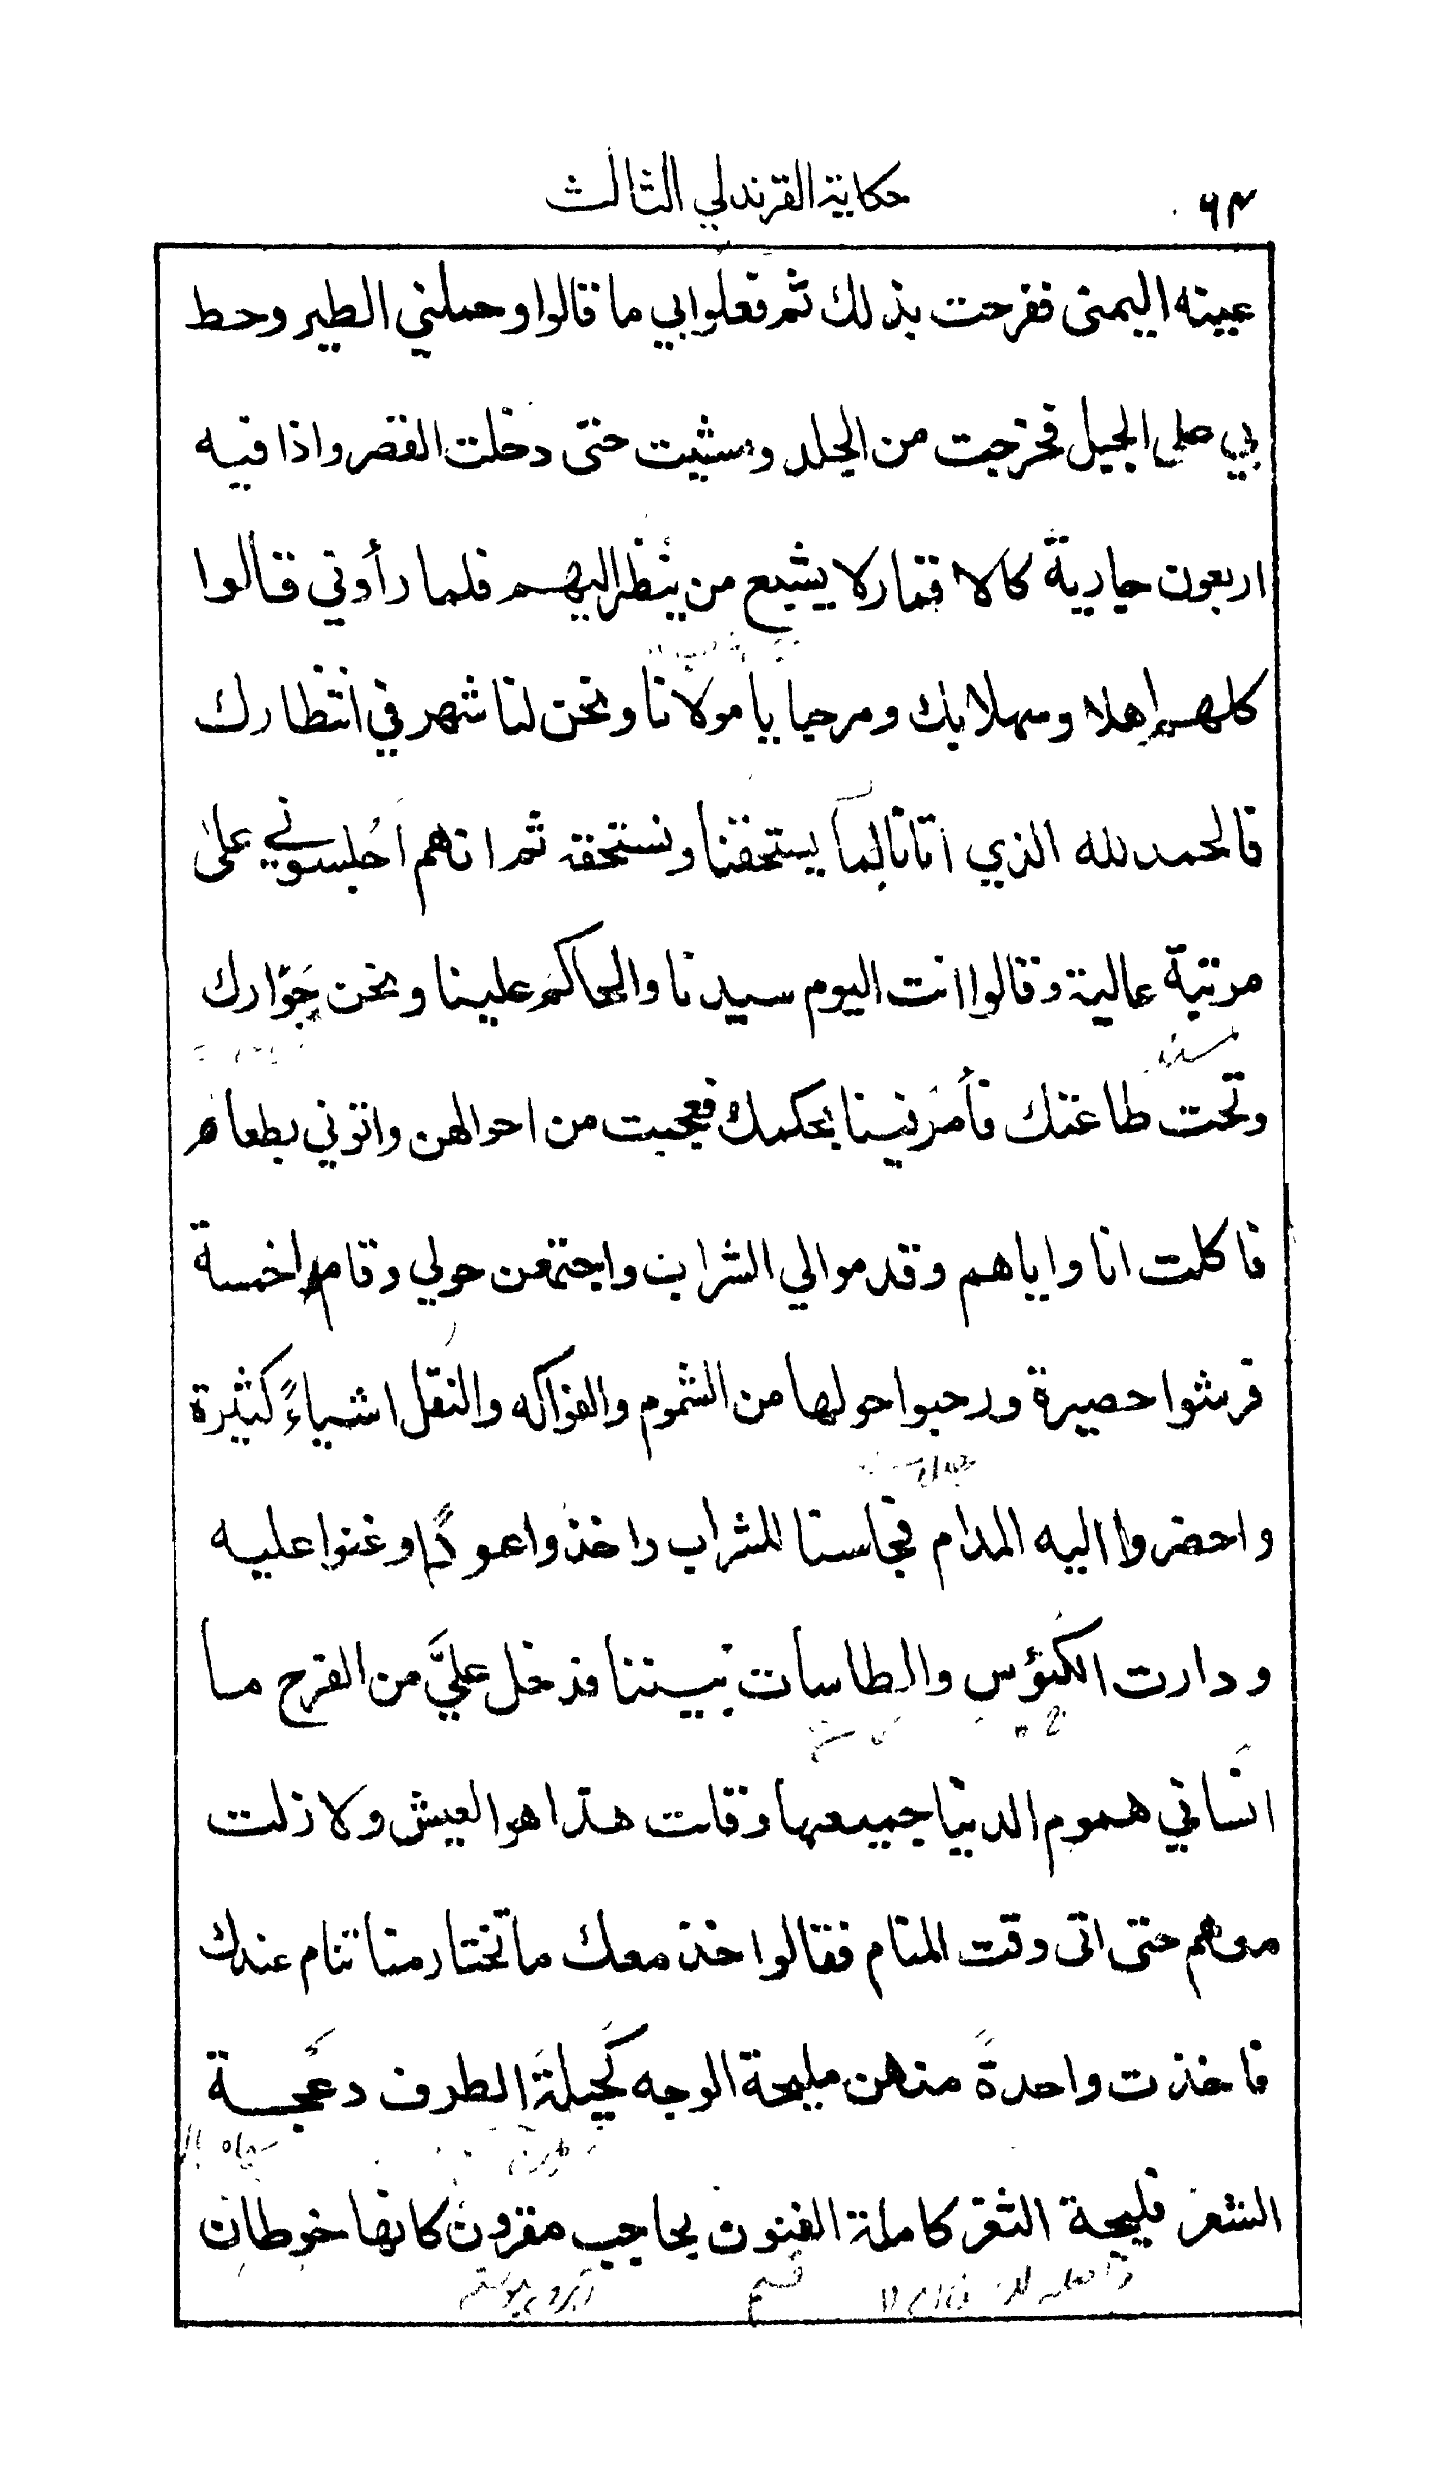 ٦٣ حكاية القرندلي الثالث
عينه اليمنى ففرحت بذلك ثم فعلوا بي ما قالوا وحملني الطير وحط
بي على الجبل فخرجت من الجلد ومشيت حتى دخلت القصر واذا فيه
اربعون جارية كالاقمار لا يشبع من ينظر اليهم فلما رأوني قالوا
كلهم اهلا وسهلا بك ومرحبا يا مولانا ونحن لنا شهر في انتظارك
فالحمد لله الذي اتانا لما يستحقنا ونستحقه ثم انهم اجلسوني على
مرتبة عالية وقالوا انت اليوم سيدنا والحاكم علينا ونحن جوارك
وتحت طاعتك فأمر فينا بحكمك فعجبت من احوالهن واتوني بطعام
فاكلت انا واياهم وقدموا لي الشراب واجتمعن حولي وقام خمسة
فرشوا حصيرة ورحبوا حولها من الشموم والفواكه والنقل اشياءً كثيرة
واحضروا اليه المدام فجلسنا للشراب واخذوا عودًا وغنوا عليه
ودارت الكئوس والطاسات بيننا فدخل عليَّ من الفرح ما
انساني هموم الدنيا جميعها وقلت هذا هو العيش ولا زلت
معهم حتى اتى وقت المنام فقالوا خذ معك ما تختار منا تنام عندك
فاخذت واحدةً منهن مليحة الوجه كحيلة الطرف دعجة
الشعر فليجة الثغر كاملة الفنون بحاجب مقرون كانها خوطان